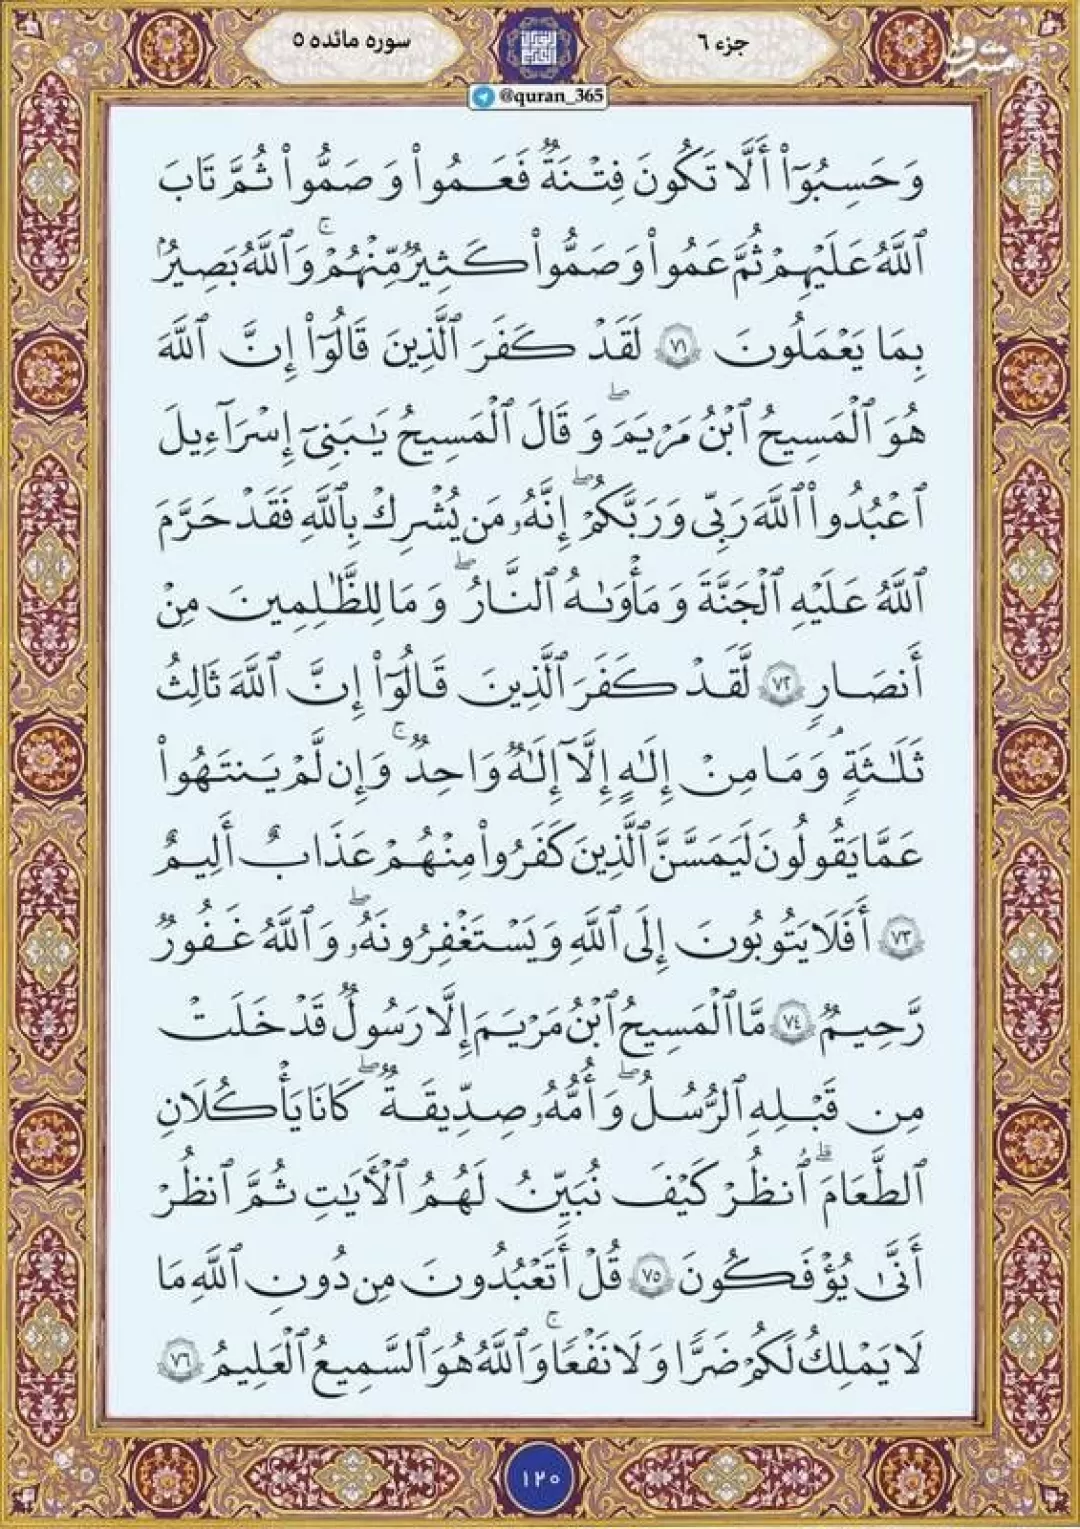 جزء ۶
سوره مائده ۵
مشرق
mashreghnews.ir
@quran_365
وَحَسِبُوٓا۟ أَلَّا تَكُونَ فِتْنَةٌ فَعَمُوا۟ وَصَمُّوا۟ ثُمَّ تَابَ
ٱللَّهُ عَلَيْهِمْ ثُمَّ عَمُوا۟ وَصَمُّوا۟ كَثِيرٌ مِّنْهُمْ ۚ وَٱللَّهُ بَصِيرٌۢ
بِمَا يَعْمَلُونَ ٧١ لَقَدْ كَفَرَ ٱلَّذِينَ قَالُوٓا۟ إِنَّ ٱللَّهَ
هُوَ ٱلْمَسِيحُ ٱبْنُ مَرْيَمَ ۖ وَقَالَ ٱلْمَسِيحُ يَـٰبَنِىٓ إِسْرَٰٓءِيلَ
ٱعْبُدُوا۟ ٱللَّهَ رَبِّى وَرَبَّكُمْ ۖ إِنَّهُۥ مَن يُشْرِكْ بِٱللَّهِ فَقَدْ حَرَّمَ
ٱللَّهُ عَلَيْهِ ٱلْجَنَّةَ وَمَأْوَىٰهُ ٱلنَّارُ ۖ وَمَا لِلظَّـٰلِمِينَ مِنْ
أَنصَارٍ ٧٢ لَّقَدْ كَفَرَ ٱلَّذِينَ قَالُوٓا۟ إِنَّ ٱللَّهَ ثَالِثُ
ثَلَـٰثَةٍ ۘ وَمَا مِنْ إِلَـٰهٍ إِلَّآ إِلَـٰهٌ وَٰحِدٌ ۚ وَإِن لَّمْ يَنتَهُوا۟
عَمَّا يَقُولُونَ لَيَمَسَّنَّ ٱلَّذِينَ كَفَرُوا۟ مِنْهُمْ عَذَابٌ أَلِيمٌ
٧٣ أَفَلَا يَتُوبُونَ إِلَى ٱللَّهِ وَيَسْتَغْفِرُونَهُۥ ۖ وَٱللَّهُ غَفُورٌ
رَّحِيمٌ ٧٤ مَّا ٱلْمَسِيحُ ٱبْنُ مَرْيَمَ إِلَّا رَسُولٌ قَدْ خَلَتْ
مِن قَبْلِهِ ٱلرُّسُلُ ۖ وَأُمُّهُۥ صِدِّيقَةٌ ۖ كَانَا يَأْكُلَانِ
ٱلطَّعَامَ ۗ ٱنظُرْ كَيْفَ نُبَيِّنُ لَهُمُ ٱلْـَٔايَـٰتِ ثُمَّ ٱنظُرْ
أَنَّىٰ يُؤْفَكُونَ ٧٥ قُلْ أَتَعْبُدُونَ مِن دُونِ ٱللَّهِ مَا
لَا يَمْلِكُ لَكُمْ ضَرًّا وَلَا نَفْعًا ۚ وَٱللَّهُ هُوَ ٱلسَّمِيعُ ٱلْعَلِيمُ ٧٦
١٢٠